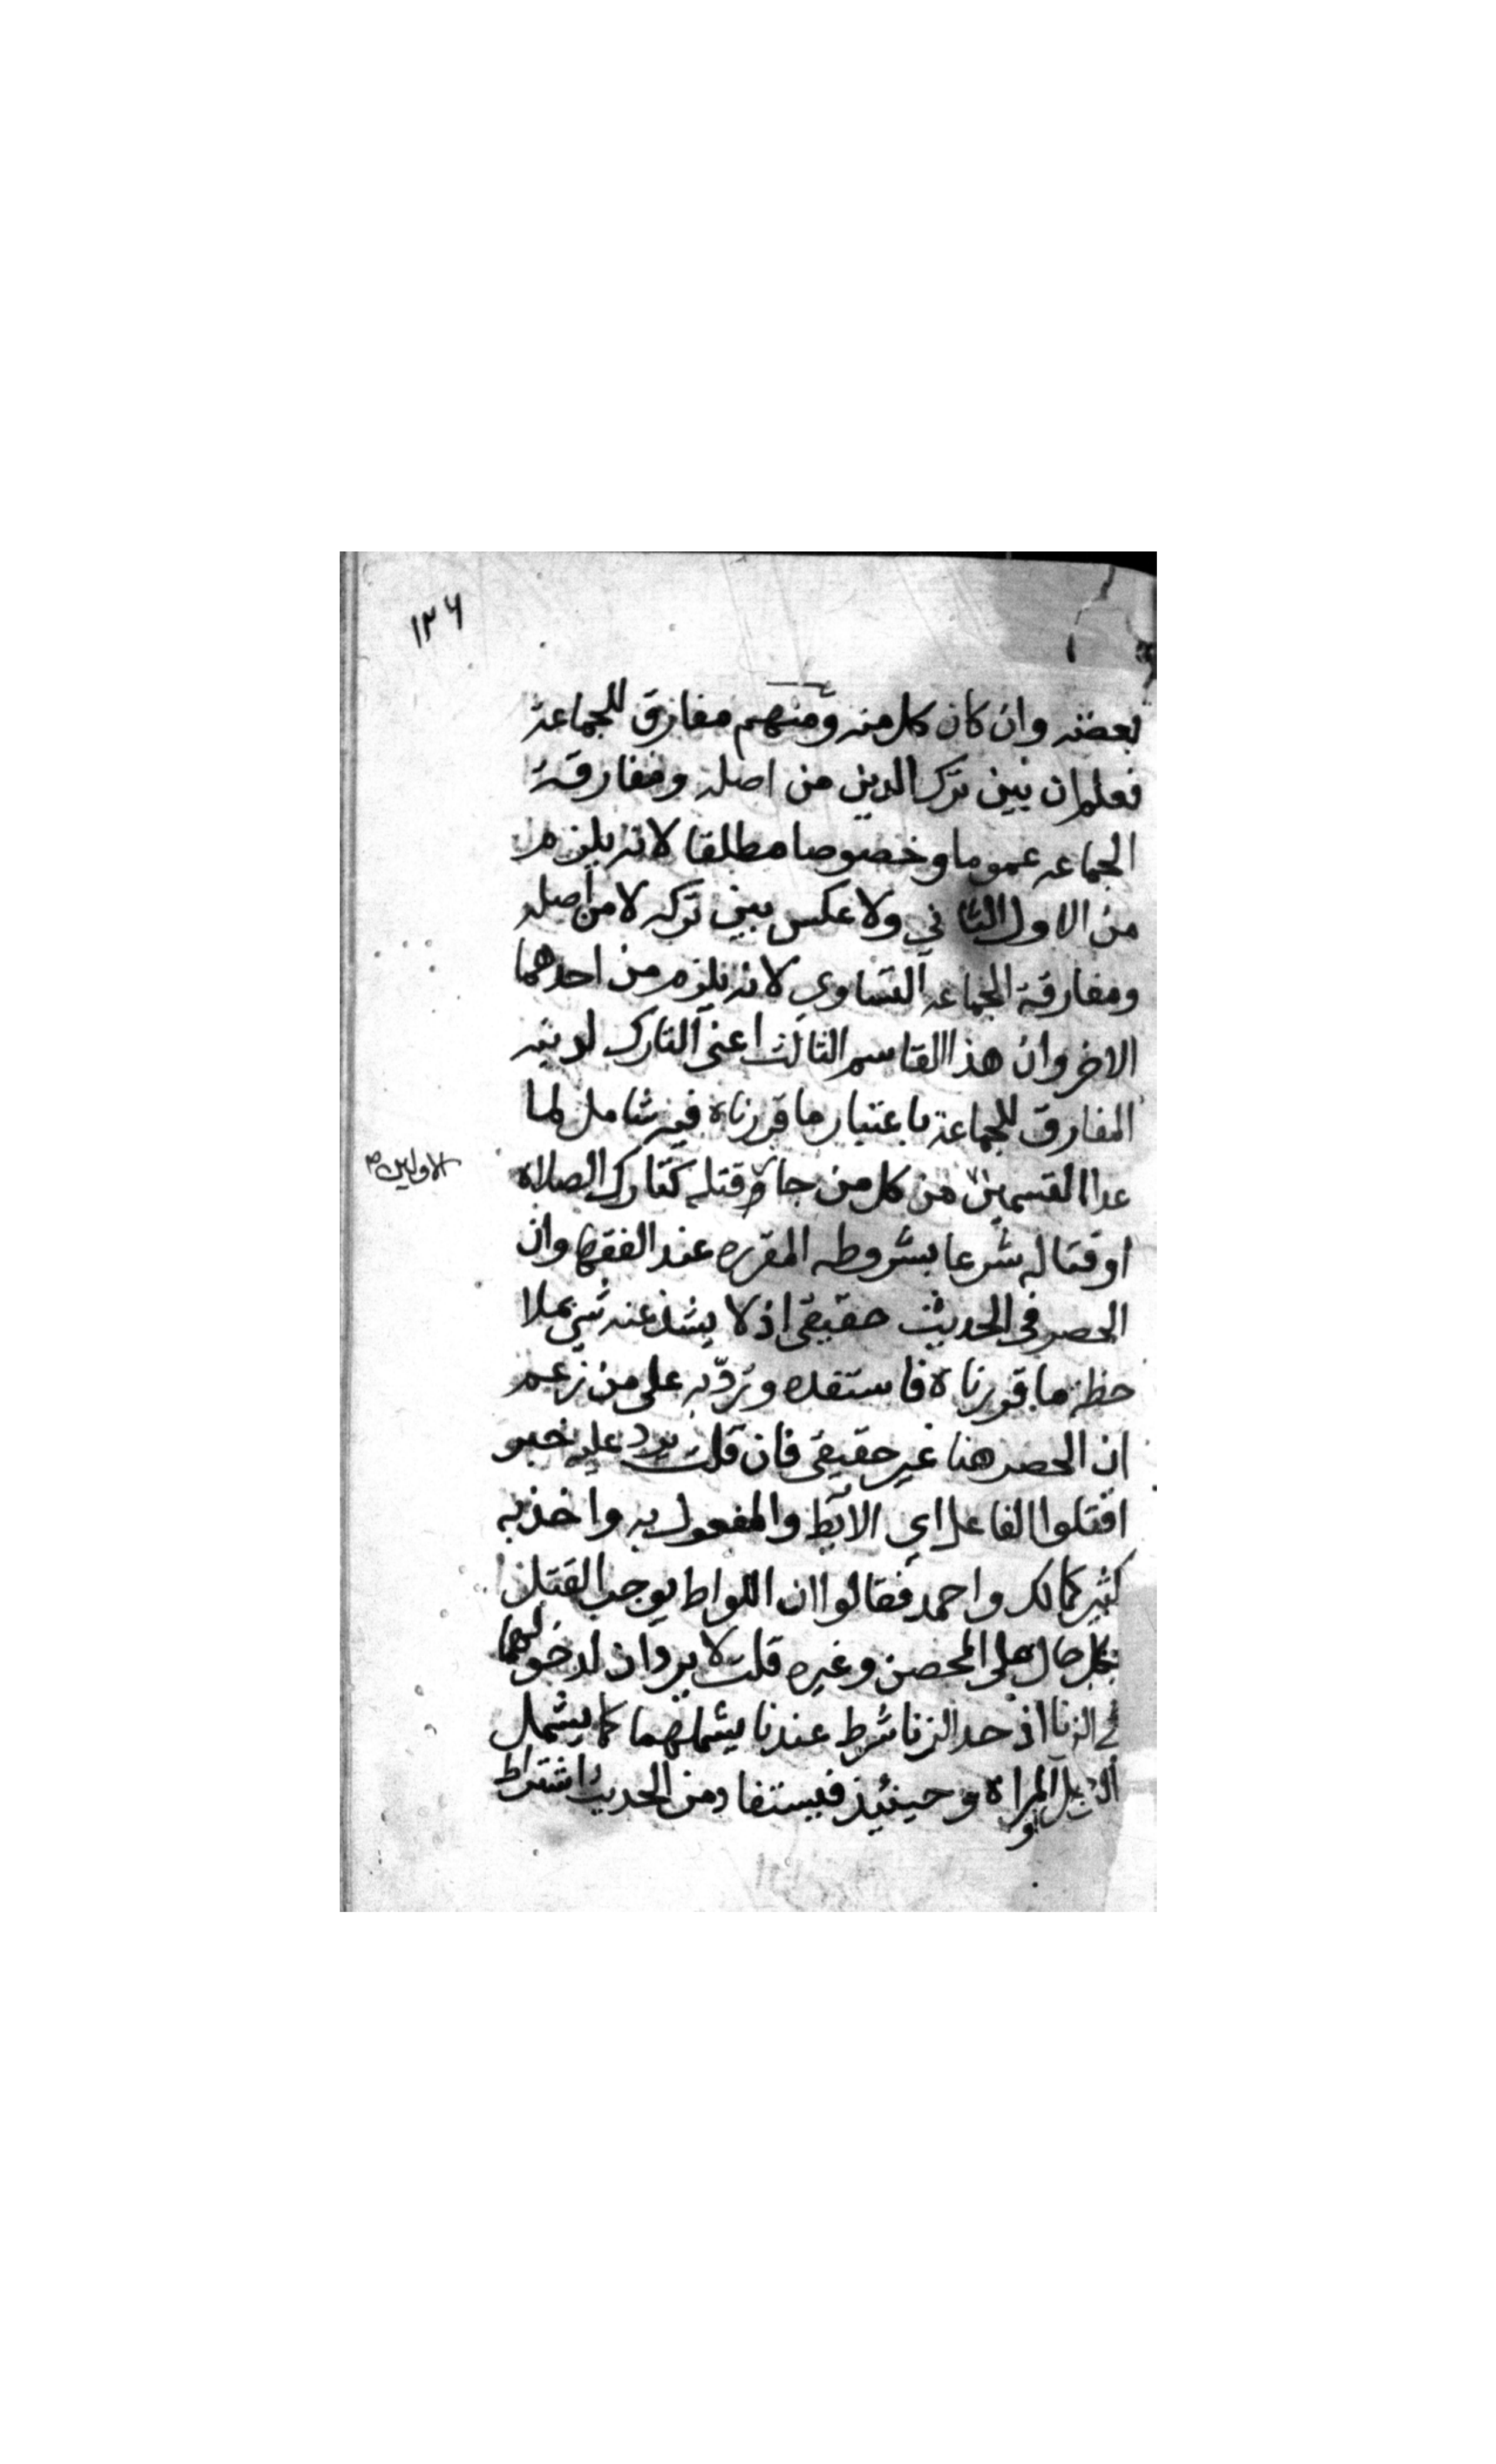 ١٢٦
بعضه وان كان كل منه ومنهم مفارق للجماعة
فعلم ان بين ترك الدين من اصله ومفارقة
الجماعه عموما وخصوصا مطلقا لانه يلزم
من الاول الثاني ولا عكس بين تركه لا من اصله
ومفارقة الجماعه التساوي لانه يلزم من احدهما
الاخر وان هذا القاسم الثالث اعني التارك لدينه
المفارق للجماعة باعتبار ما قررناه فيه شامل لما
عدا القسمين من كل من جاز قتله كتارك الصلاة
الاولين صح
او قتاله شرعا بشروطه المقرره عند الفقها وان
الحصر في الحديث حقيقي اذ لا يشذ عنه شي بملا
حظة ما قررناه فاستفده وترد به على من زعم
ان الحصر هنا غير حقيقي فان قلت يرد عليه خبر
اقتلوا الفاعل اي اللائط والمفعول به واخذ به
كثير كمالك واحمد فقالوا ان اللواط يوجب القتل
بكل حال على المحصن وغيره قلت لا يردان لدخولهما
في الزنا اذ حد الزنا شرط عندنا يشملهما كما يشمل
المراة وحينئذ فيستفاد من الحديث اشتراط